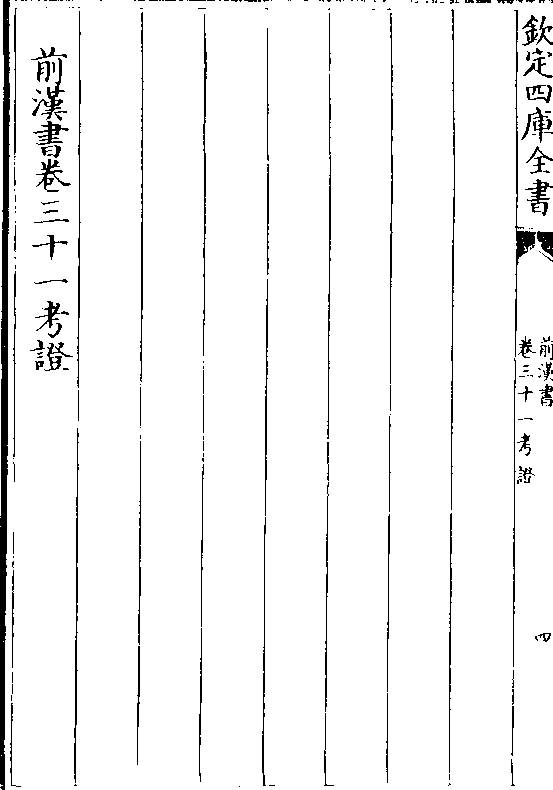 欽定四庫全書
前漢書
卷三十一考證
四
前漢書卷三十一考證